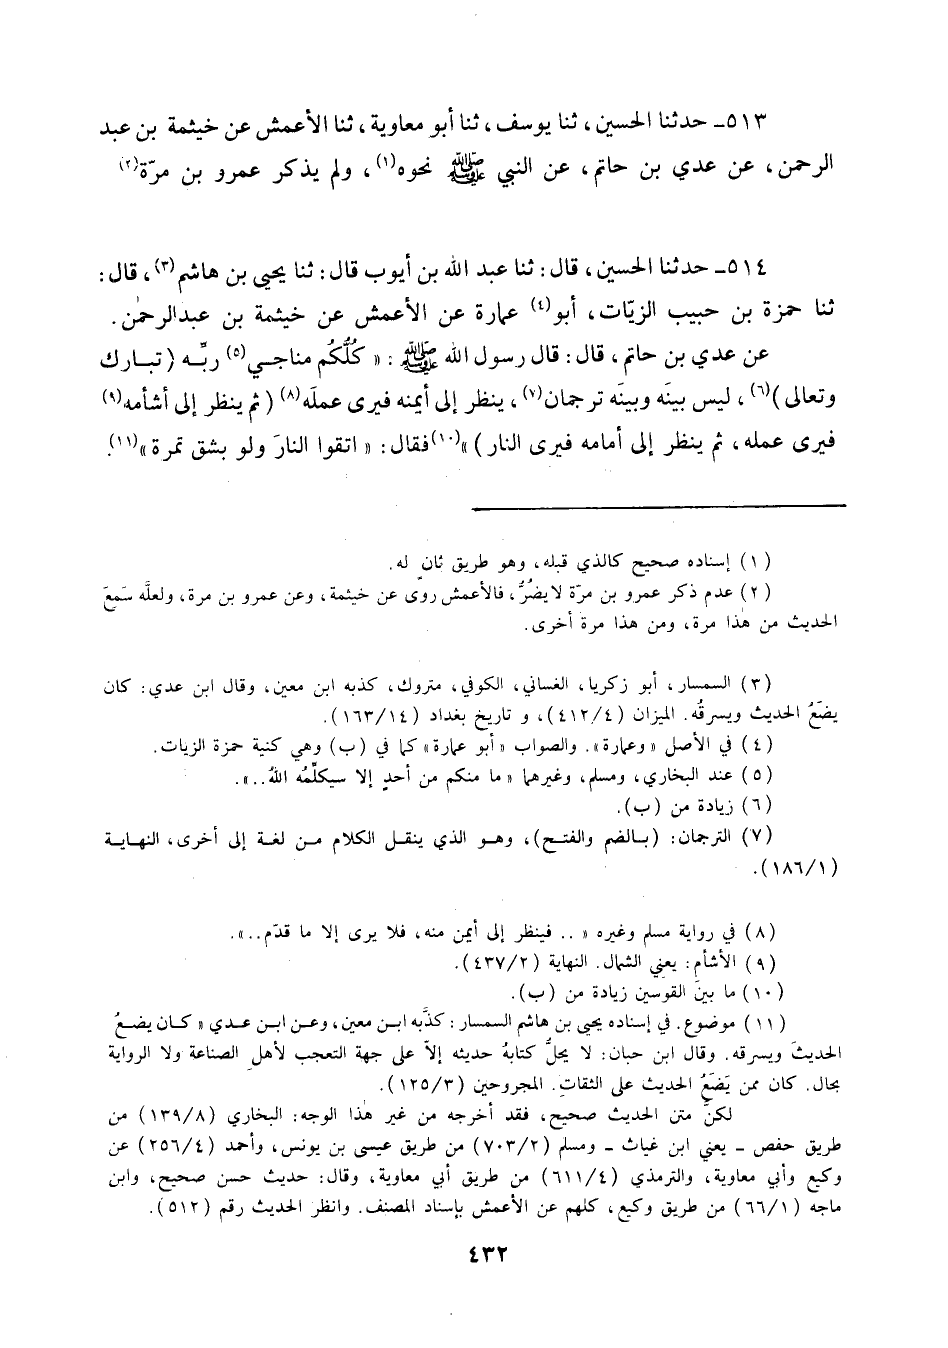 ٥١٣ـ حدثنا الحسين، ثنا يوسف، ثنا أبو معاوية، ثنا الأعمش عن خيثمة بن عبد
الرحمن، عن عدي بن حاتم، عن النبي ﷺ نحوه(١)، ولم يذكر عمرو بن مرّة(٢)
٥١٤ـ حدثنا الحسين، قال: ثنا عبد الله بن أيوب قال: ثنا يحيى بن هاشم(٣)، قال:
ثنا حمزة بن حبيب الزيّات، أبو(٤) عمارة عن الأعمش عن خيثمة بن عبدالرحمٰن.
عن عدي بن حاتم، قال: قال رسول الله ﷺ: « كُلُّكُم مناجي(٥) ربِّه (تبارك
وتعالى)(٦)، ليس بينَه وبينَه ترجمان(٧)، ينظر إلى أيمنه فيرى عملَه(٨) (ثم ينظر إلى أشأمه(٩)
فيرى عمله، ثم ينظر إلى أمامه فيرى النار)»(١٠)فقال: « اتقوا النارَ ولو بشق تمرة»(١١).
(١) إسناده صحيح كالذي قبله، وهو طريق ثانٍ له.
(٢) عدم ذكر عمرو بن مرّة لا يضُرُّ، فالأعمش روى عن خيثمة، وعن عمرو بن مرة، ولعلَّه سَمعَ
الحديث من هٰذا مرة، ومن هذا مرة أخرى.
(٣) السمسار، أبو زكريا، الغساني، الكوفي، متروك، كذبه ابن معين، وقال ابن عدي: كان
يضَعُ الحديث ويسرقُه. الميزان (٤١٢/٤)، و تاريخ بغداد (١٦٣/١٤).
(٤) في الأصل «وعمارة». والصواب «أبو عمارة» كما في (ب) وهي كنية حمزة الزيات.
(٥) عند البخاري، ومسلم، وغيرهما « ما منكم من أحدٍ إلا سيكلِّمُه اللهُ..».
(٦) زيادة من (ب).
(٧) الترجمان: (بالضم والفتح)، وهو الذي ينقل الكلام من لغة إلى أخرى، النهاية
(١٨٦/١).
(٨) في رواية مسلم وغيره « .. فينظر إلى أيمن منه، فلا يرى إلا ما قدّم..».
(٩) الأشأم: يعني الشمال. النهاية (٤٣٧/٢).
(١٠) ما بينَ القوسين زيادة من (ب).
(١١) موضوع. في إسناده يحيى بن هاشم السمسار: كذَّبه ابن معين، وعن ابن عدي « كان يضعُ
الحديثَ ويسرقه. وقال ابن حبان: لا يحلُّ كتابةُ حديثه إلاّ على جهة التعجب لأهلِ الصناعة ولا الرواية
بحال. كان ممن يَضَعُ الحديث على الثقات. المجروحين (١٢٥/٣).
لكنَّ متن الحديث صحيح، فقد أخرجه من غير هٰذا الوجه: البخاري (١٣٩/٨) من
طريق حفص ـ يعني ابن غياث ـ ومسلم (٧٠٣/٢) من طريق عيسى بن يونس، وأحمد (٢٥٦/٤) عن
وكيع وأبي معاوية، والترمذي (٦١١/٤) من طريق أبي معاوية، وقال: حديث حسن صحيح، وابن
ماجه (٦٦/١) من طريق وكيع، كلهم عن الأعمش بإسناد المصنف. وانظر الحديث رقم (٥١٢).
٤٣٢